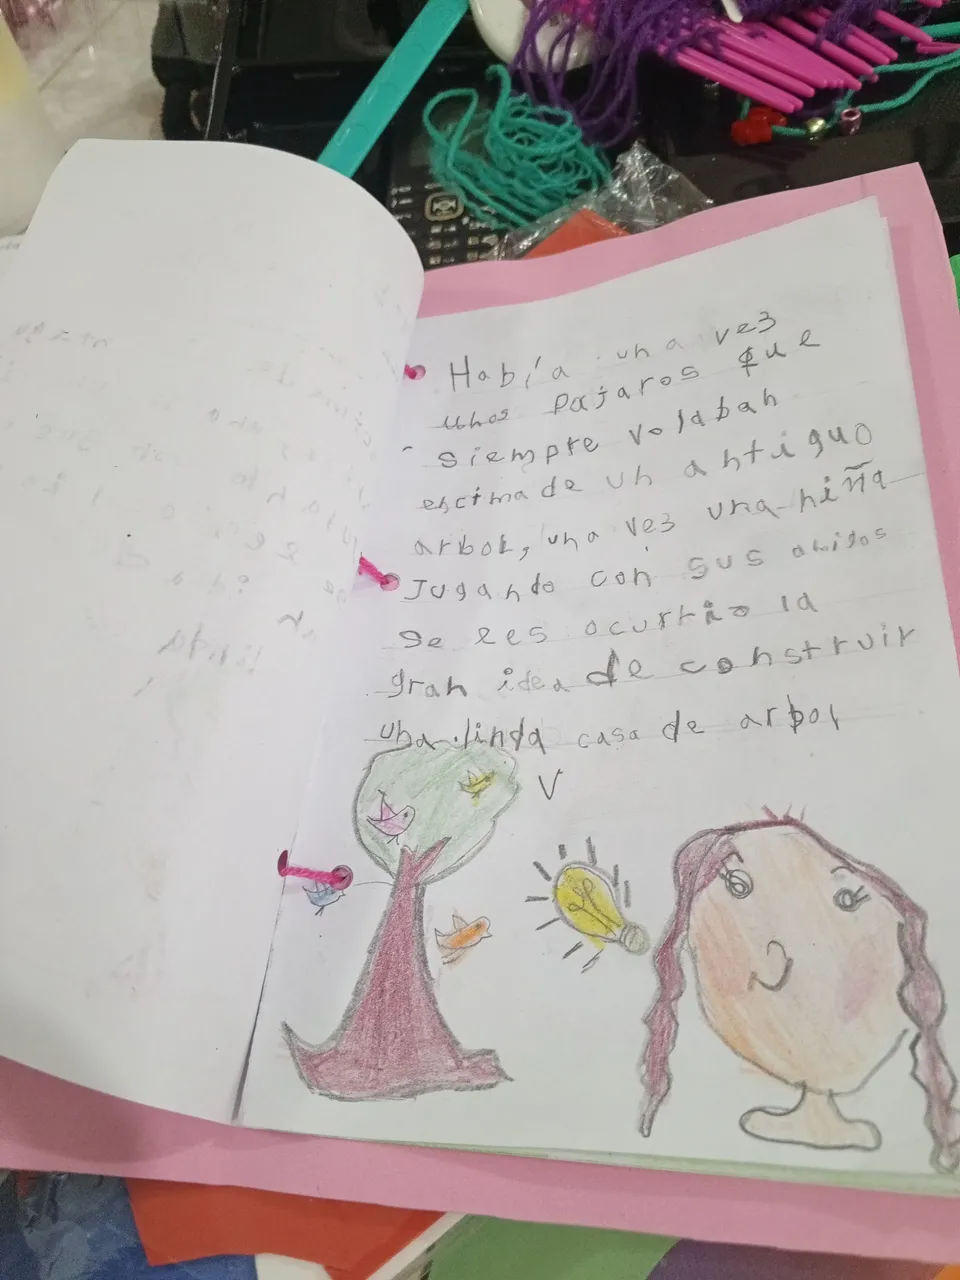 Había una vez
unos pajaros que
siempre volaban
encima de un antiguo
arbol, una vez una niña
Jugando con sus amigos
se les ocurrio la
gran idea de construir
una linda casa de arbol
V